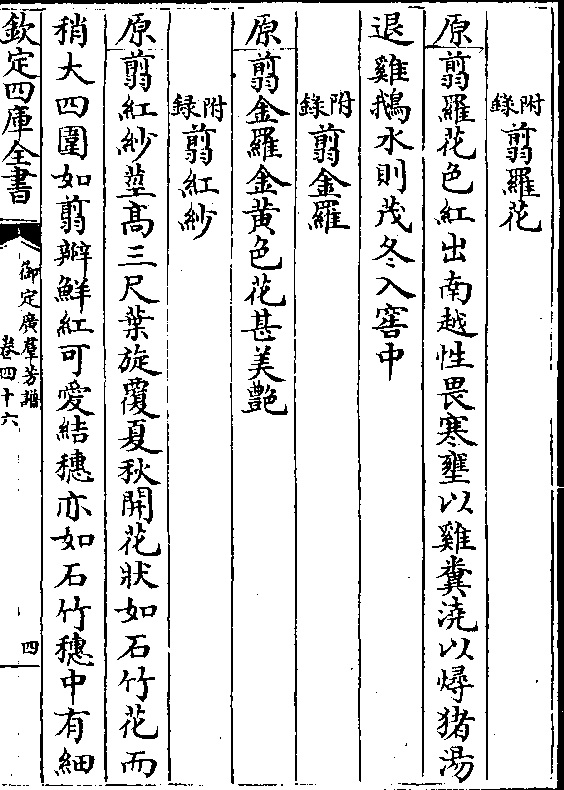 附錄翦羅花
原翦羅花色紅出南越性畏寒壅以雞糞澆以燖猪湯
退雞鵝水則茂冬入窖中
附錄翦金羅
原翦金羅金黄色花甚美艶
附錄翦紅紗
原翦紅紗莖髙三尺葉旋覆夏秋開花狀如石竹花而
稍大四圍如翦瓣鮮紅可愛結穗亦如石竹穗中有細
欽定四庫全書
御定廣羣芳譜
卷四十六
四